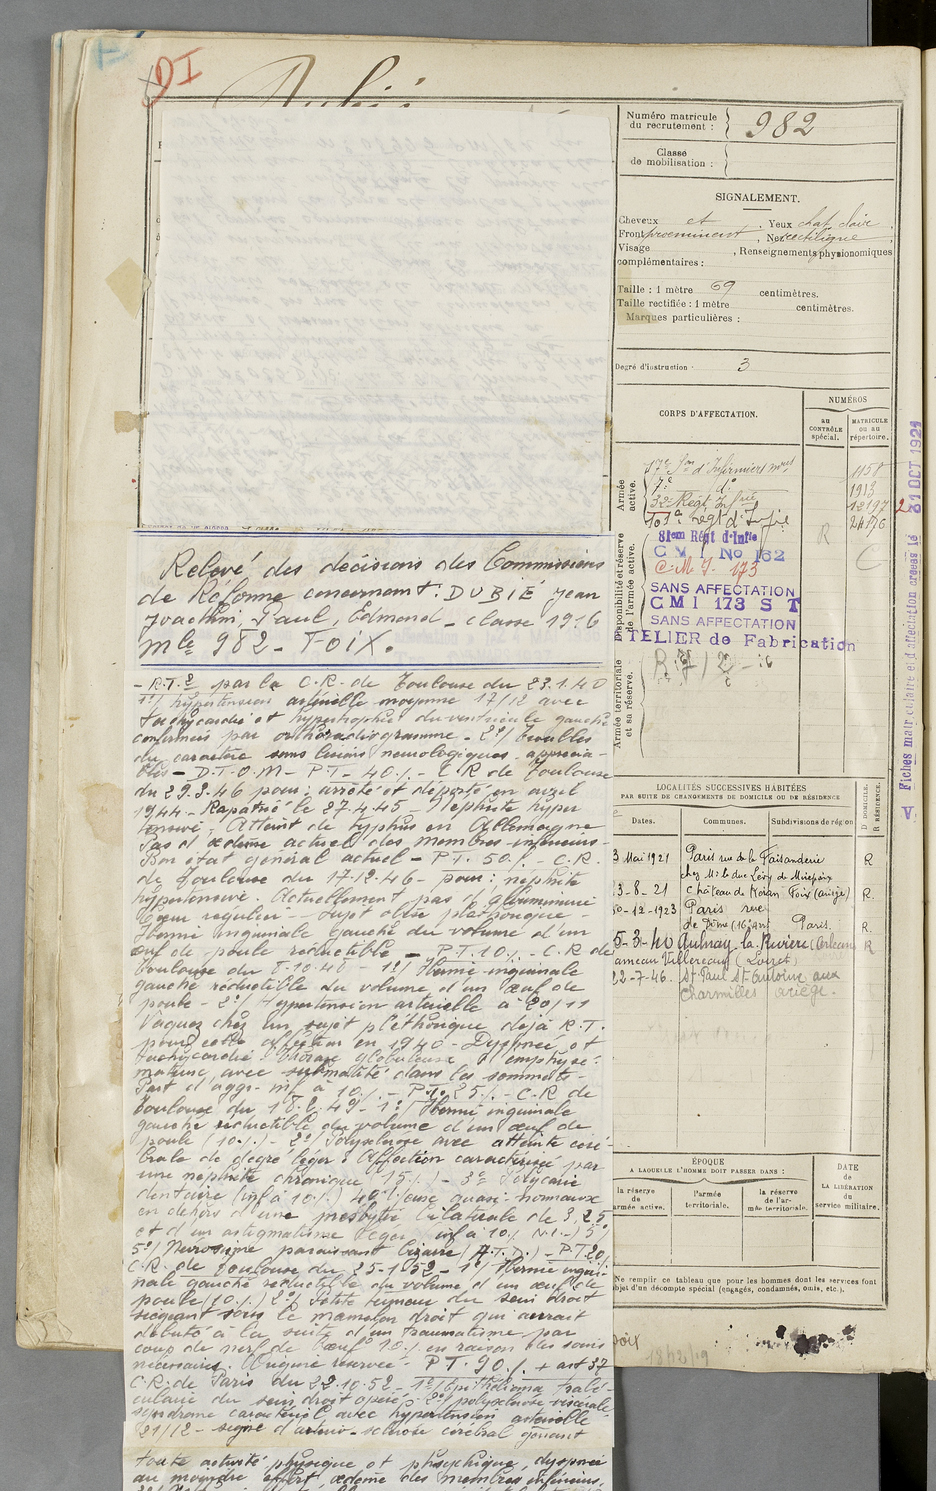 DI
Dubié
Numéro matricule
du recrutement :
982
Classe
de mobilisation :
SIGNALEMENT.
Cheveux ct . Yeux chat. clair .
Front proeminent , Nez rectiligne ;
Visage , Renseignements physionomiques
complémentaires :
Taille : 1 mètre 69 centimètres.
Taille rectifiée : 1 mètre centimètres.
Marques particulières :
Degré d'instruction . 3
CORPS D'AFFECTATION.
NUMÉROS
au
CONTRÔLE
spécial.
MATRICULE
ou au
répertoire.
Armée
active.
17e Son d'Infirmiers mres 1158
7e do 1913
32e Regt Infrie 12197
103e regt d'Infie 24176
Disponibilité et réserve
de l'armée active.
81em Régt d'Infie
C M I No 162
C.M.I. 173
SANS AFFECTATION
CMI 173 S T
SANS AFFECTATION
TELIER de Fabrication
R
C
Armée territoriale
et sa réserve.
Fiches matriculaire et d'affectation créées le 31 OCT 1921
LOCALITÉS SUCCESSIVES HABITÉES
PAR SUITE DE CHANGEMENTS DE DOMICILE OU DE RÉSIDENCE
D DOMICILE.
R RÉSIDENCE.
Dates.
Communes.
Subdivisions de région
3 Mai 1921 Paris rue de la Faisanderie R
chez Mr le duc Lévy de Mirepoix
3-8-21 Château de Foix (ariège) R.
10-12-1923 Paris rue
(16e arrt Paris. R.
5-3-40 Aulnay la Rivière (Orléans R
ameau Villereau (Loiret)
22-7-46. St Paul St Antoine aux
Charmilles ariège.
ÉPOQUE
A LAQUELLE L'HOMME DOIT PASSER DANS :
DATE
DE
LA LIBÉRATION
du
service militaire.
la réserve
de
armée active.
l'armée
territoriale.
la réserve
de l'ar-
mée territoriale.
Ne remplir ce tableau que pour les hommes dont les services font
objet d'un décompte spécial (engagés, condamnés, omis, etc.).
Relevé des décisions des Commissions
de Réforme concernant : DUBIÉ Jean
Joachim, Paul, Edmond - classe 1916
mle 982 - FOIX.
- R.T.2 par la C.R. de Toulouse du 23.1.40
1o/ hypertension artérielle moyenne 17/12 avec
tachycardie et hypertrophie du ventricule gauche
confirmées par orthoradiogramme - 2o/ troubles
du caractère sans lésions neurologiques apprécia-
bles - D.T.O.M - P.T. 40% - C.R de Toulouse
du 29.3.46 pour : arrêté et déporté en avril
1944 - Rapatrié le 27.4.45 - Nephrite hyper
tensive, Atteint de typhus en Allemagne
Pas d'œdème actuel des membres inférieurs -
Bon état général actuel - P.T. 50% - C.R.
de Toulouse du 17-12-46 - pour : nephrite
hypertensive. Actuellement pas d'albuminurie
Cœur régulier - sujet obèse pléthorique -
Hernie inguinale gauche du volume d'un
œuf de poule réductible - P.T. 10% - C.R de
Toulouse du 8-10-48 - 1o/ Hernie inguinale
gauche réductible du volume d'un œuf de
poule - 2o/ Hypertension artérielle à 20/11
Vaquez chez un sujet pléthorique déjà R.T.
pour cette affection en 1940 - Dyspnée et
tachycardie - Thorax globuleux d'emphysé-
mateux avec submatité dans les sommets -
Part d'aggr. inf à 10% - P.T. 25% - C.R de
Toulouse du 18.2.49 - 1o/ Hernie inguinale
gauche réductible du volume d'un œuf de
poule (10%) - 2o/ Polysclérose avec atteinte céré-
brale de degré léger : Affection caractérisée par
une néphrite chronique (15%) - 3o Polycarie
dentaire (inf à 10%) 4o/ quasi-normaux
en dehors d'une presbytie bilatérale de 3,25
et d'un astigmatisme léger inf à 10%
5o/ Neurosisme paraissant bizarre (A.T.D.) - P.T 20%
C.R. de Toulouse du 25-1-1952 - 1o/ Hernie ingui-
nale gauche réductible du volume d'un œuf de
poule (10%) 2o/ Petite tumeur du sein droit
siégeant sous le mamelon droit qui aurait
débuté à la suite d'un traumatisme par
coup de nerf de bœuf 10% en raison des soins
nécessaires. Origine réservée. P.T 90% + art 37
C.R. de Paris du 22.10.52 - 1o/ Epithélioma trabé-
culaire du sein droit opéré - 2o/ polysclérose viscérale
syndrome caractériel avec hypertension artérielle
21/12 - signe d'artério-sclérose cérébral gênant
toute activité physique et phsychique, dyspnée
au moindre effort œdème des membres inférieurs,